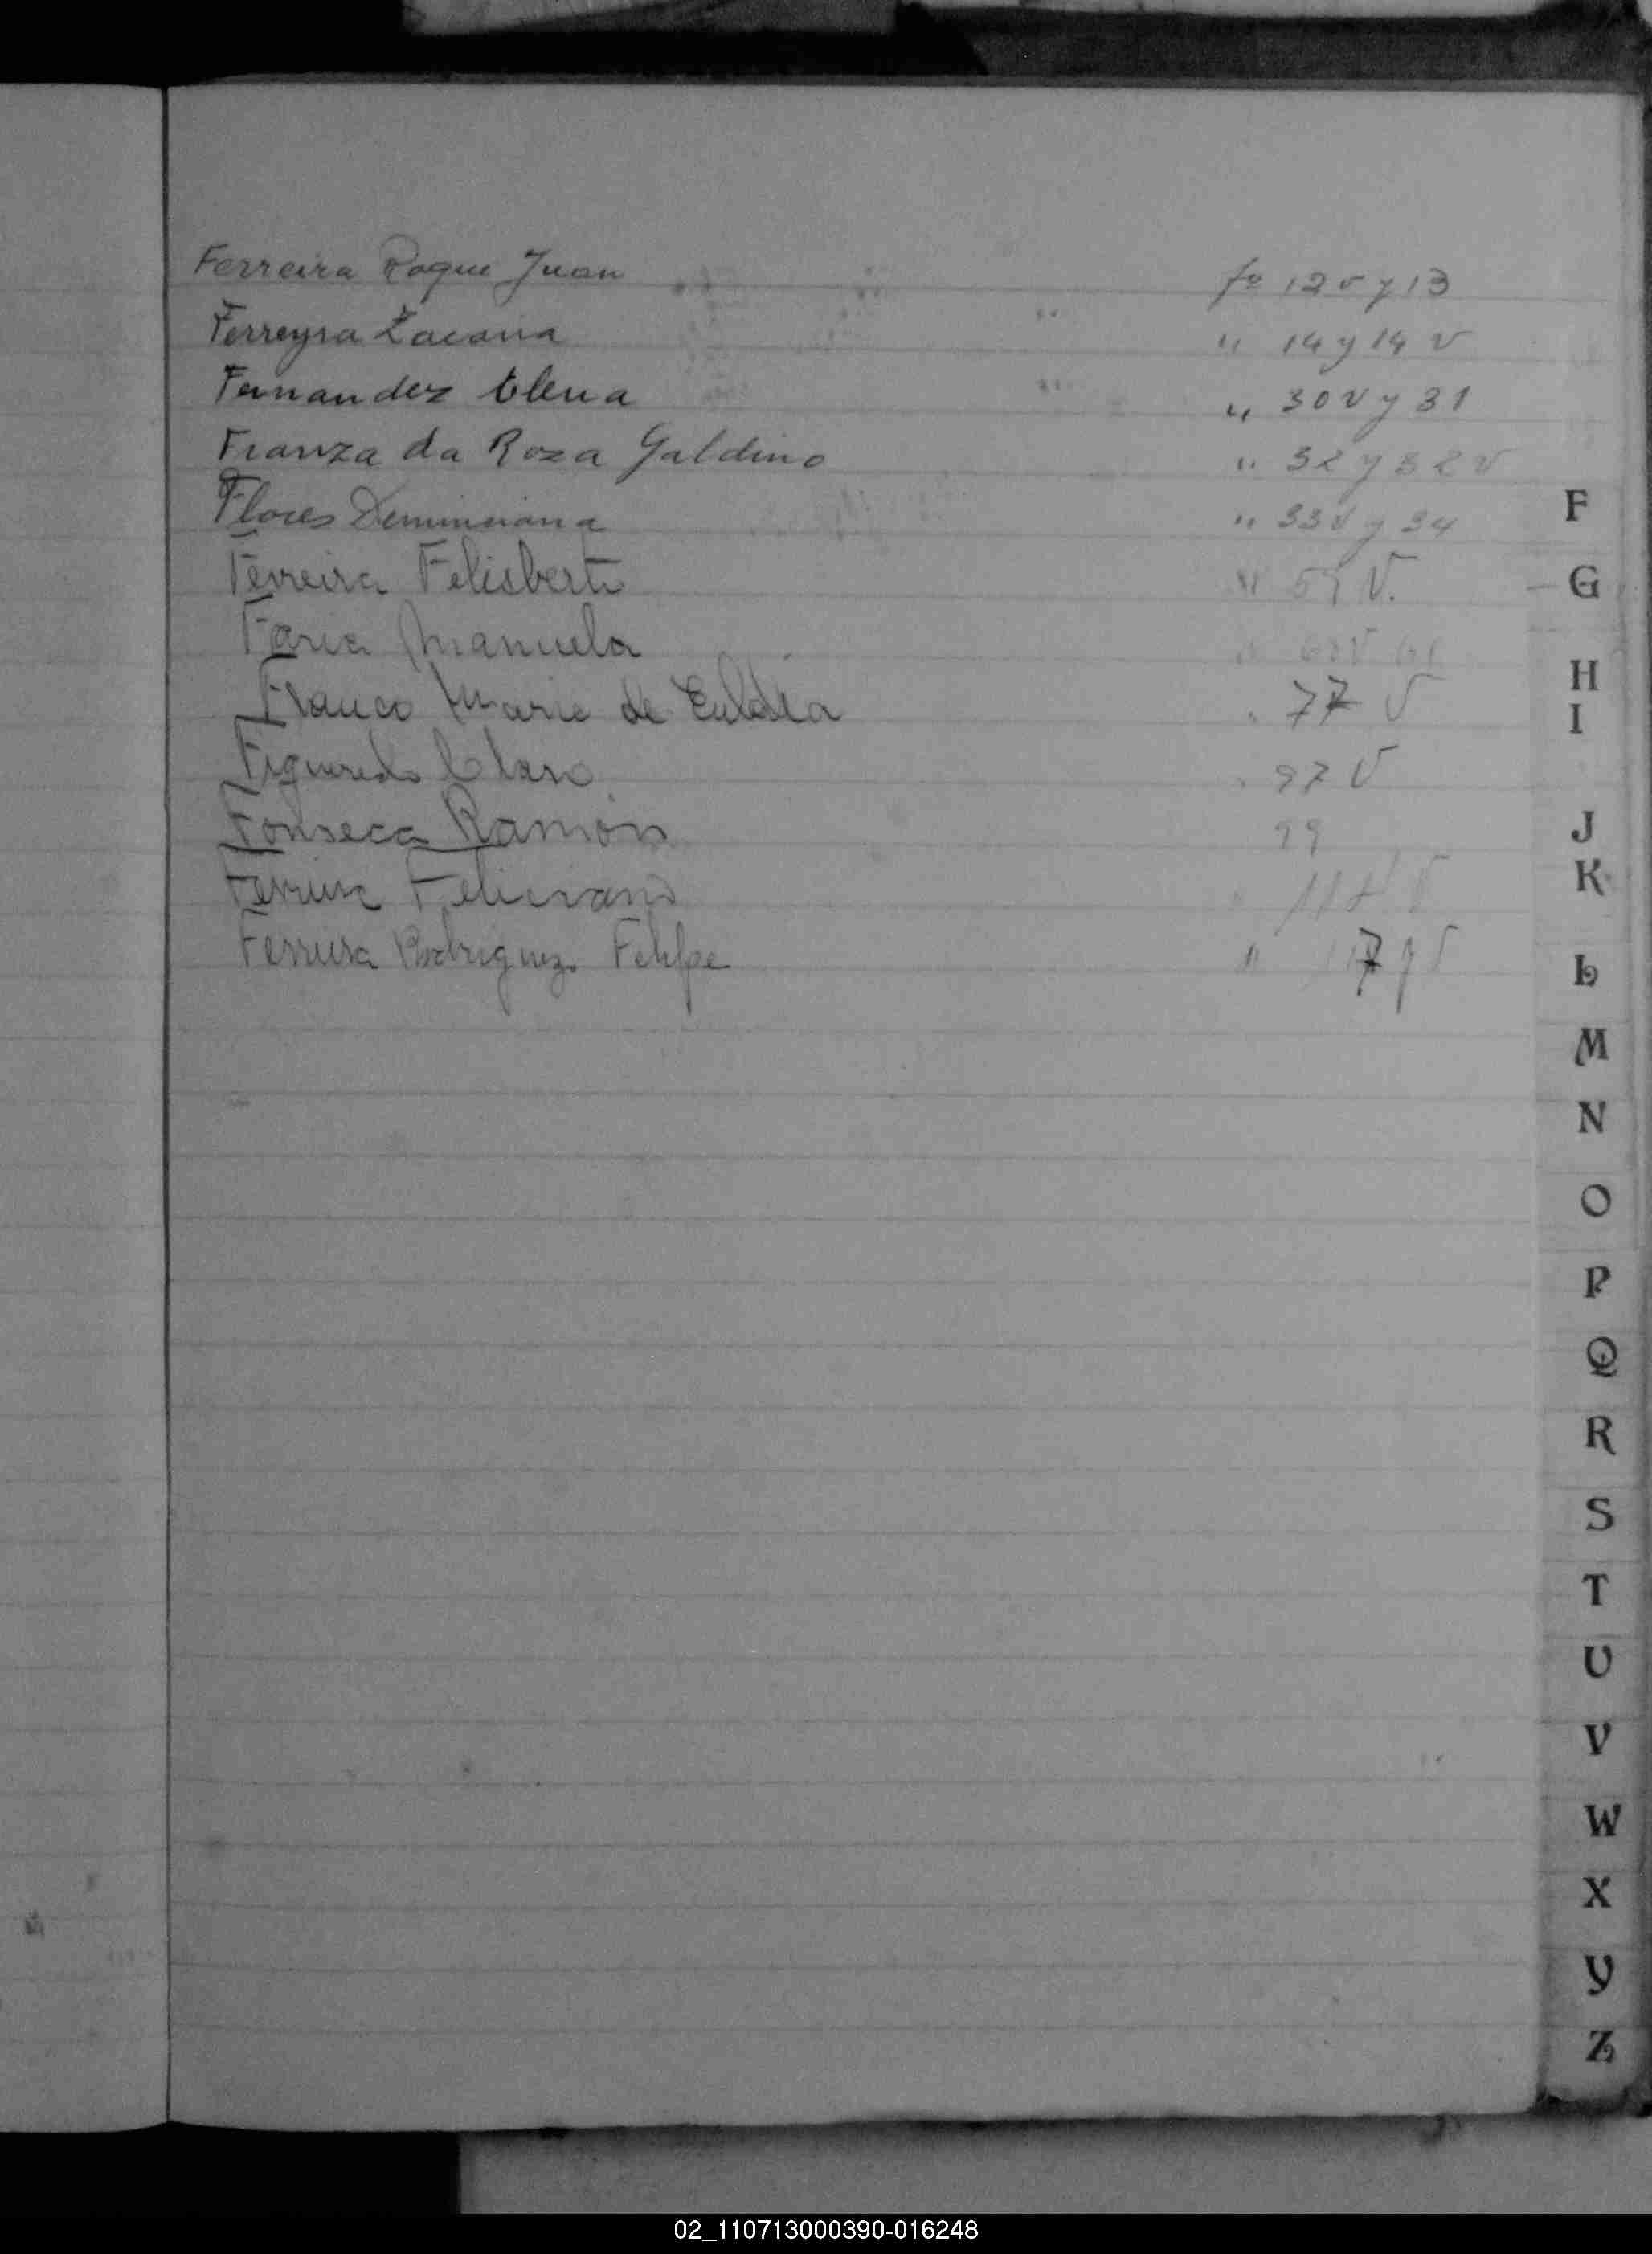 Ferreira Roque Juan fº 12 v y 13
Ferreyra Zacaria " 14 y 14 v
Fernandez Elena " 30 v y 31
Franza da Roza Galdino " 32 y 32 v
Flores " 33 v y 34
Ferreira Felisberto " 59 V.
Faria Manuela " 60 V 61
Franco Maria de Eulalia " 77 V
Figueredo Claro " 97 V
Fonseca Ramón 99
Ferreira Feliciano "
Ferreira Rodriguez Felipe "
F
G
H
I
J
K
L
M
N
O
P
Q
R
S
T
U
V
W
X
Y
Z
02_110713000390-016248